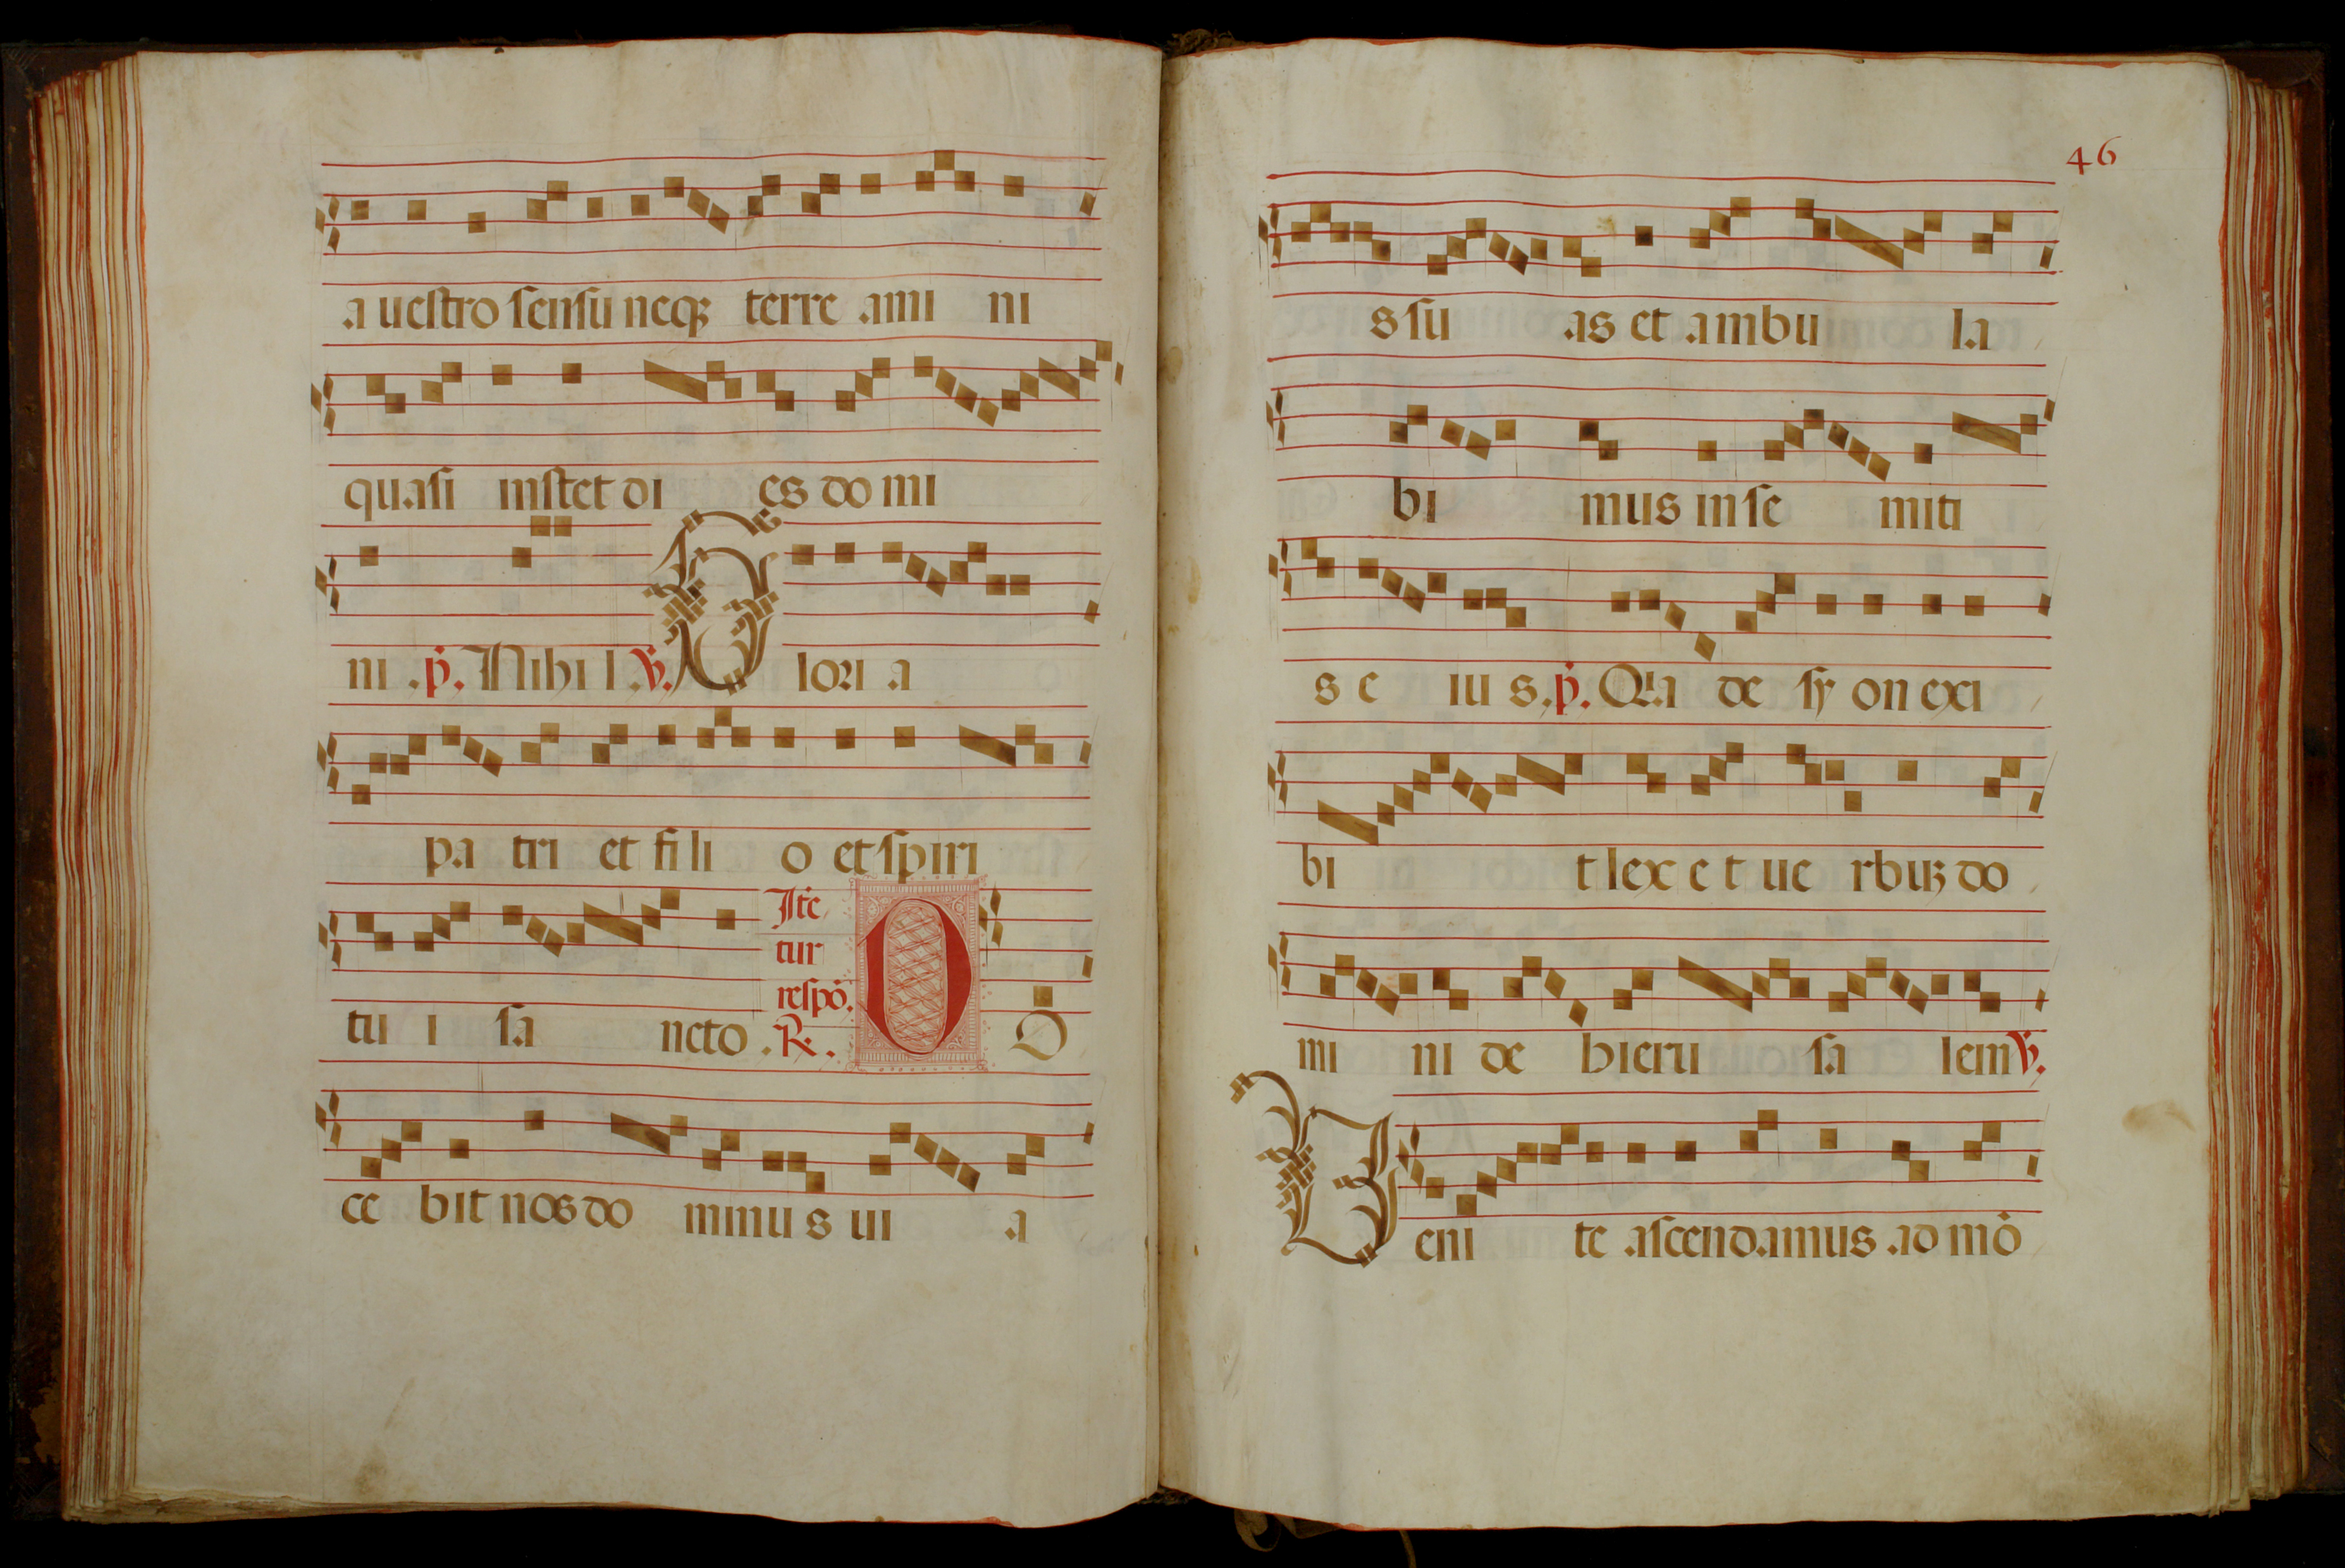 a uestro sensu neqꝫ terre ami ni
quasi instet di es do mi
ni . p̄. Nihi l . ℣. Glori a
pa tri et fi li o et spiri
tu i sa ncto . Ite
tur
respō.
℟. D O
ce bit nos do minu s ui a
46
s su as et ambu la
bi mus in se miti
s e iu s. p̄. Quia de sy on exi
bi t lex e t ue rbuꝫ do
mi ni de hieru sa lem ℣.
Ueni te ascendamus ad mō